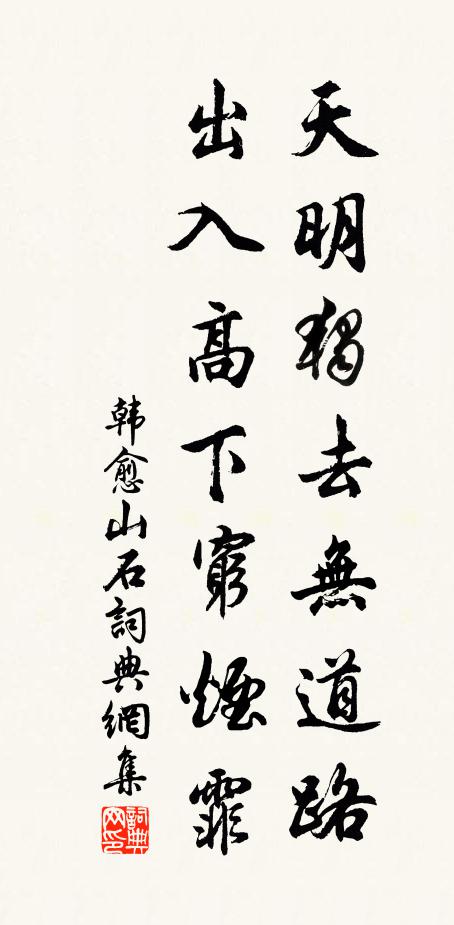 天明獨去無道路
出入高下窮煙霏
韩愈山石詞典網集
詞典网印